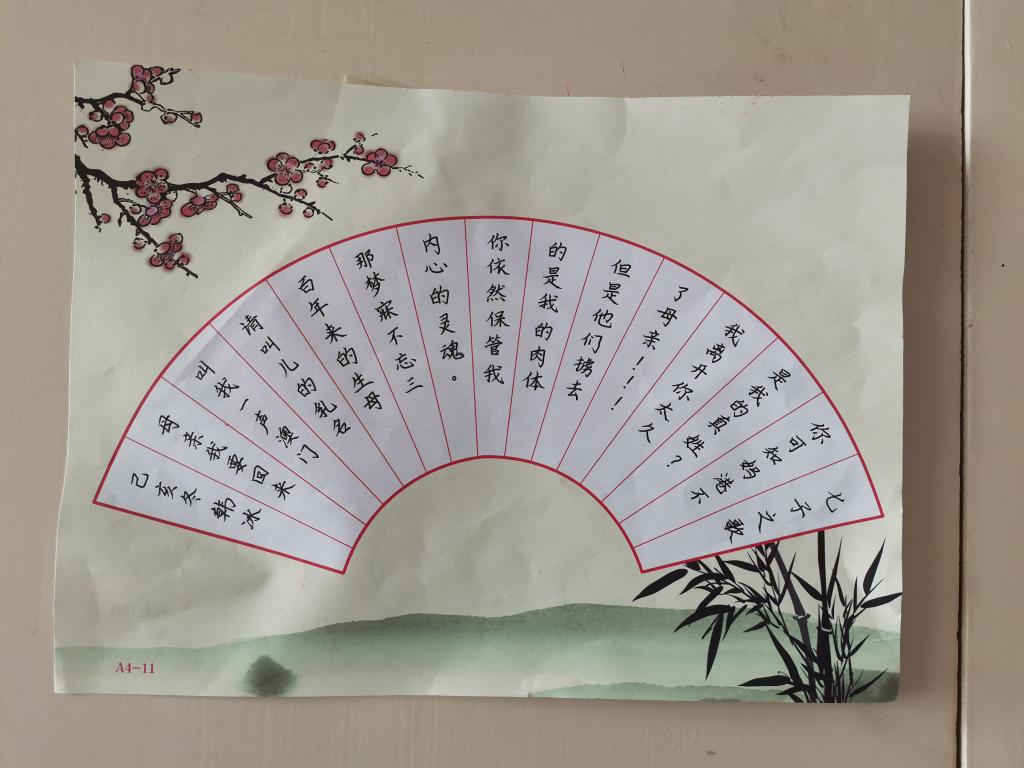 七子之歌
你可知妈港不
是我的真姓?
我离开你太久
了母亲!!!
但是他们掳去
的是我的肉体
你依然保管我
内心的灵魂。
那梦寐不忘三
百年来的生母
请叫儿的乳名
叫我一声澳门
母亲我要回来
己亥冬韩冰
A4-11